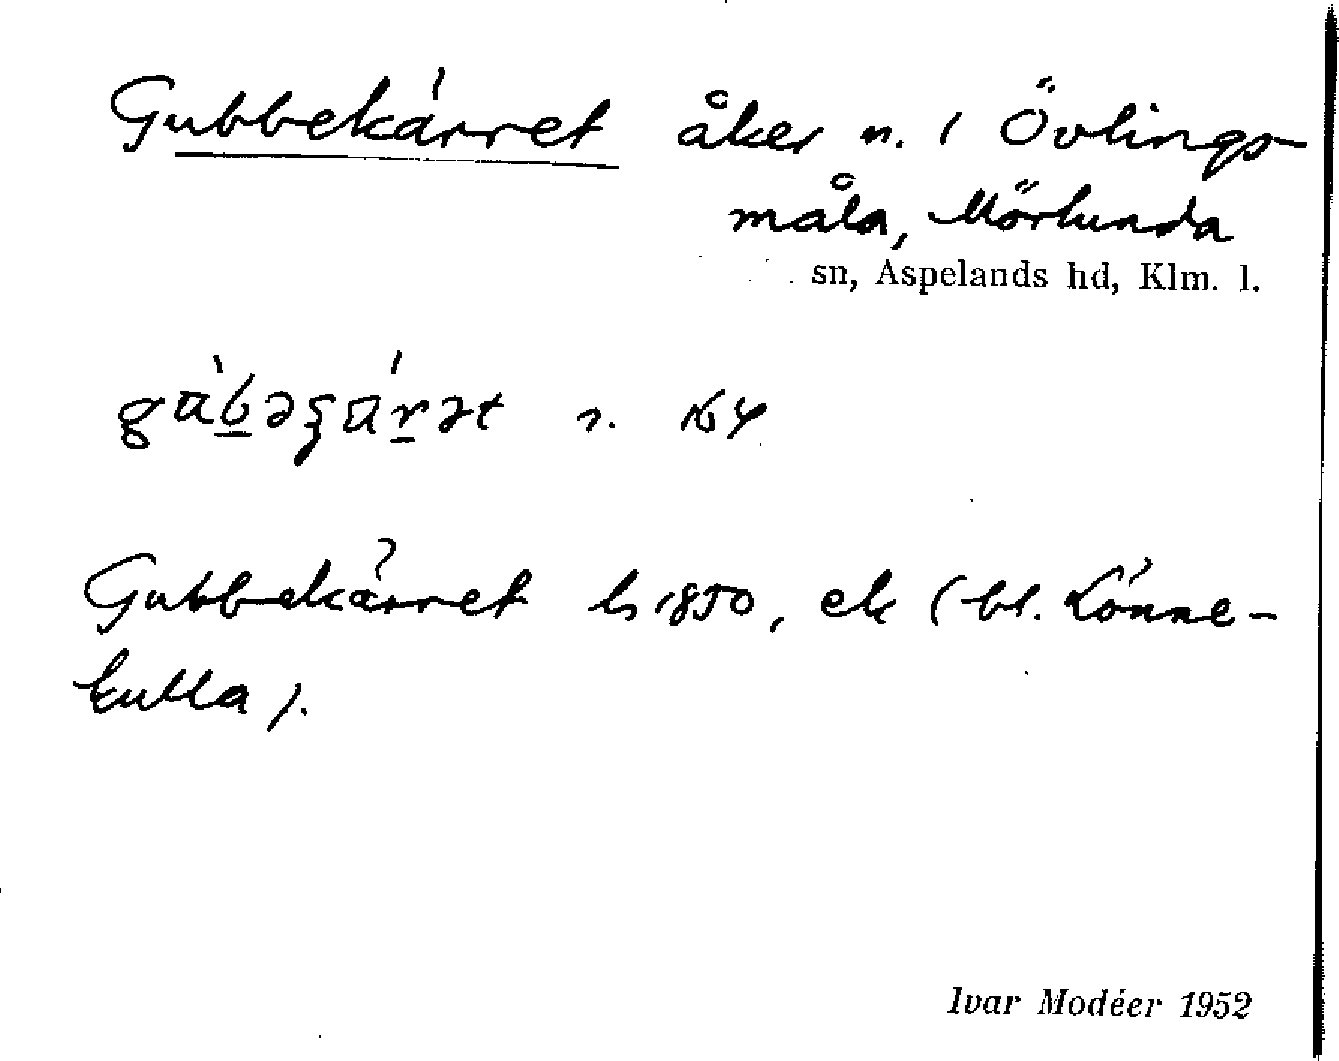 Gubbekärret åker n. i Övlings-
måla, Mörlunda
sn, Aspelands hd, Klm. l.
Gubbekärret ls 1850, ek (bl. Lönne-
kulla).
Ivar Modéer 1952